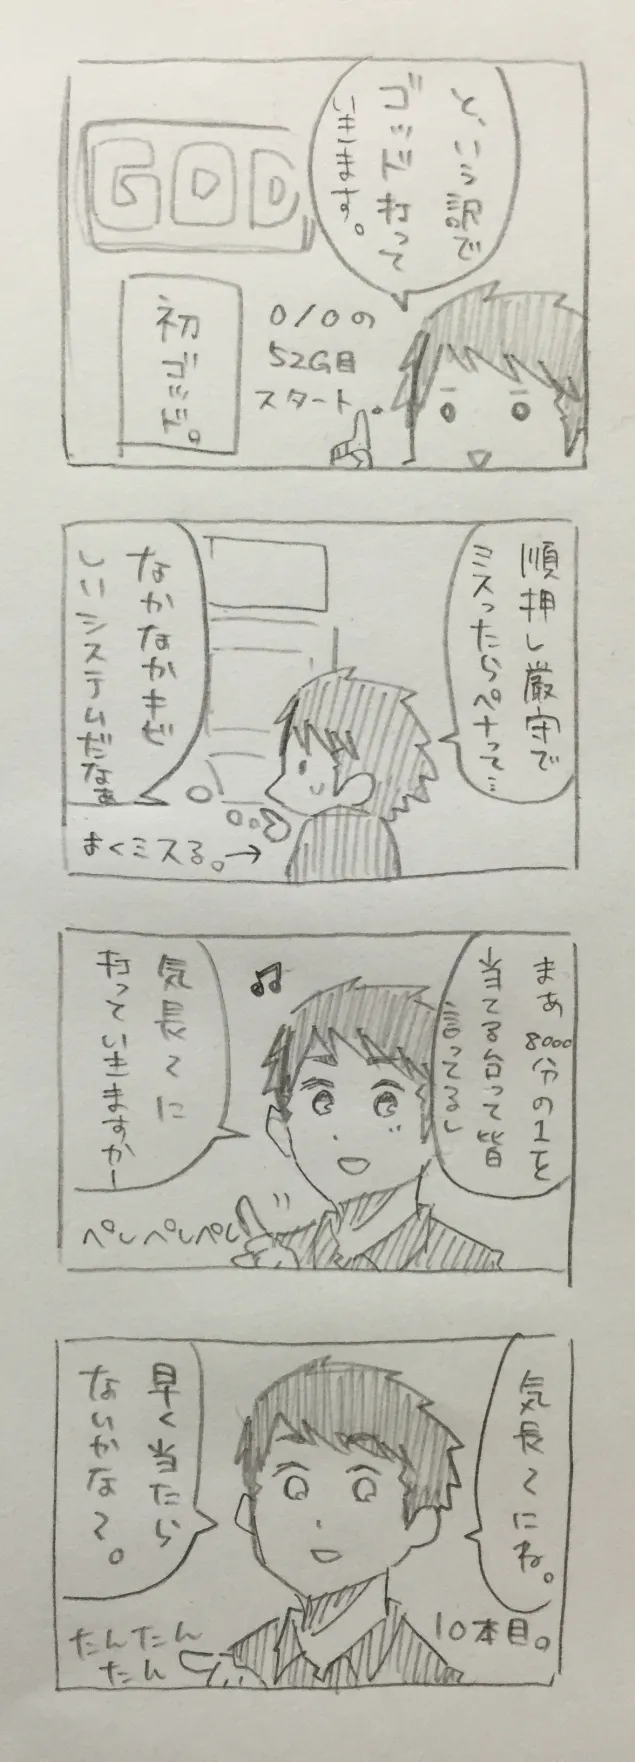 と、いう訳で
ゴッド打って
いきます。
GOD
0/0の
52G目
スタート
初ゴッド。
順押し厳守で
ミスったらペナって…
なかなかキビ
しいシステムだなぁ
よくミスる。→
まあ8000分の1を
当てる台って皆
言ってるし
気長〜に
打っていきますかー
ペしペしペし
気長〜にね。
早く当たら
ないかな〜。
10本目。
たんたん
たん